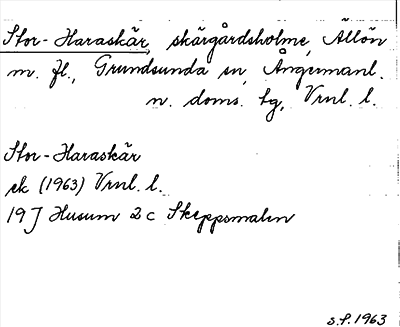 Stor-Haraskär, skärgårdsholme, Ällön
m. fl., Grundsunda sn, Ångermanl.
n. doms. tg, Vrnl. l.
Stor-Haraskär
ek (1963) Vrnl. l.
19J Husum 2c Skeppsmalen
S.F. 1963